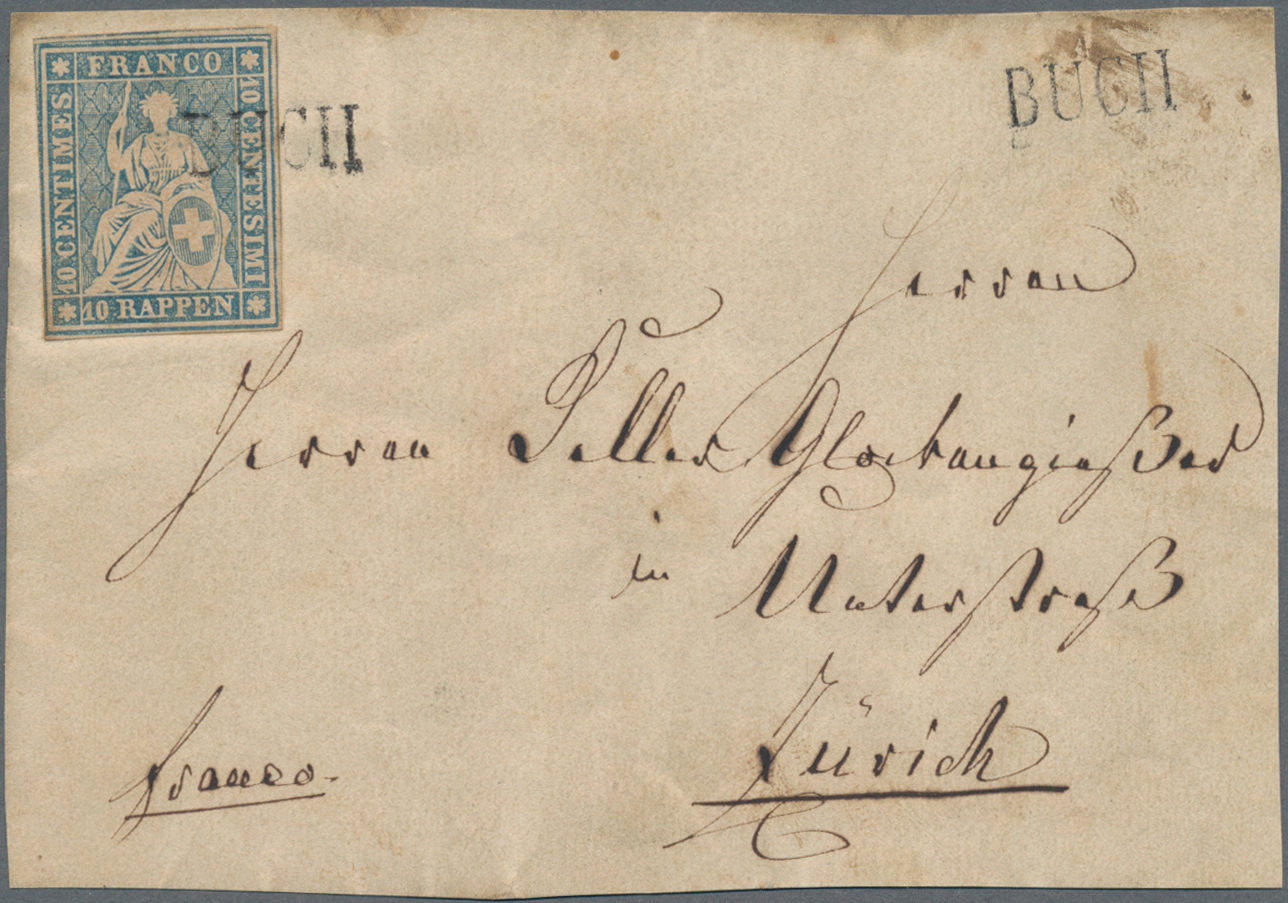 FRANCO
10 CENTIMES
10 CENTESIMI
10 RAPPEN
BUCH
BUCH
Herren
Herren Keller Glockengießer
in Unterstraß
Zürich
franco.